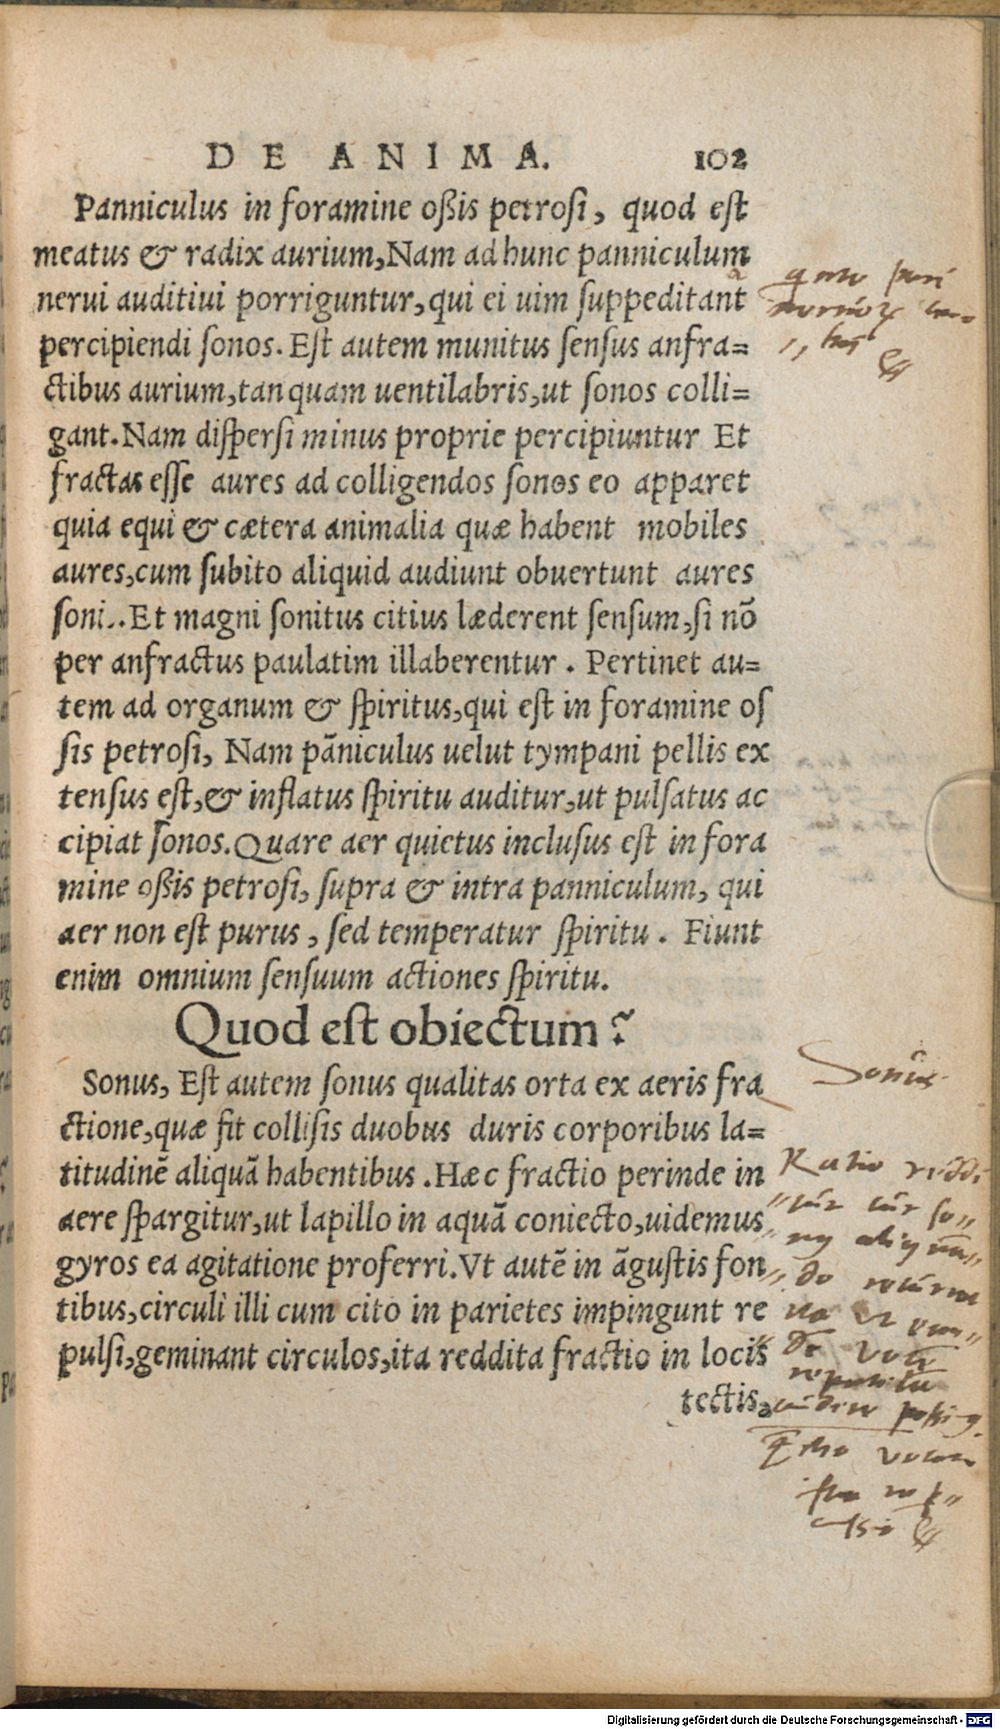 DE ANIMA. 102
Panniculus in foramine oßis petrosi, quod est
meatus & radix aurium, Nam ad hunc panniculum
nerui auditiui porriguntur, qui ei uim suppeditant
percipiendi sonos. Est autem munitus sensus anfra=
ctibus aurium, tanquam uentilabris, ut sonos colli=
gant. Nam dispersi minus proprie percipiuntur Et
fractas esse aures ad colligendos sonos eo apparet
quia equi & cætera animalia quæ habent mobiles
aures, cum subito aliquid audiunt obuertunt aures
soni.. Et magni sonitus citius læderent sensum, si nō
per anfractus paulatim illaberentur. Pertinet au=
tem ad organum & spiritus, qui est in foramine os
sis petrosi, Nam pāniculus uelut tympani pellis ex
tensus est, & inflatus spiritu auditur, ut pulsatus ac
cipiat sonos. Quare aer quietus inclusus est in fora
mine oßis petrosi, supra & intra panniculum, qui
aer non est purus, sed temperatur spiritu. Fiunt
enim omnium sensuum actiones spiritu.
Quod est obiectum?
Sonus, Est autem sonus qualitas orta ex aeris fra
ctione, quæ fit collisis duobus duris corporibus la=
titudinē aliquā habentibus. Hæc fractio perinde in
aere spargitur, ut lapillo in aquā coniecto, uidemus
gyros ea agitatione proferri. Vt autē in āgustis fon
tibus, circuli illi cum cito in parietes impingunt re
pulsi, geminant circulos, ita reddita fractio in locis
tectis,
Sonus.
Ratio reddi
Digitalisierung gefördert durch die Deutsche Forschungsgemeinschaft - DFG